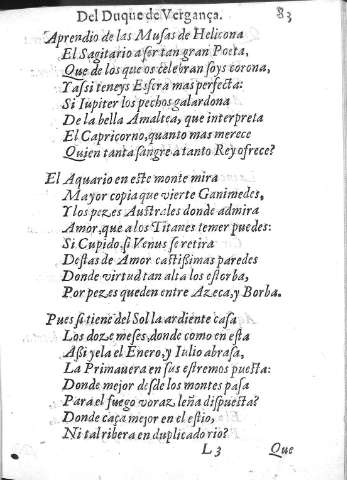 Del Duque de Vergança. 83
Aprendio de las Musas de Helicona
El Sagitario a ser tan gran Poeta,
Que de los que os celebran soys corona,
Y assi teneys Esfera mas perfecta:
Si Iupiter los pechos galardona
De la bella Amaltea, que interpreta
El Capricorno, quanto mas merece
Quien tanta sangre a tanto Rey ofrece?
El Aquario en este monte mira
Mayor copia que vierte Ganimedes,
Y los pezes Australes donde admira
Amor, que a los Titanes temer puedes:
Si Cupido, si Venus se retira
Destas de Amor castissimas paredes
Donde virtud tan alta los estorba,
Por pezes queden entre Azeca, y Borba.
Pues si tiene del Sol la ardiente casa
Los doze meses, donde como en esta
Assi yela el Enero, y Iulio abrasa,
La Primauera en sus estremos puesta:
Donde mejor desde los montes passa
Para el fuego voraz leña dispuesta?
Donde caça mejor en el estio,
Ni tal ribera en duplicado rio?
L 3 Que